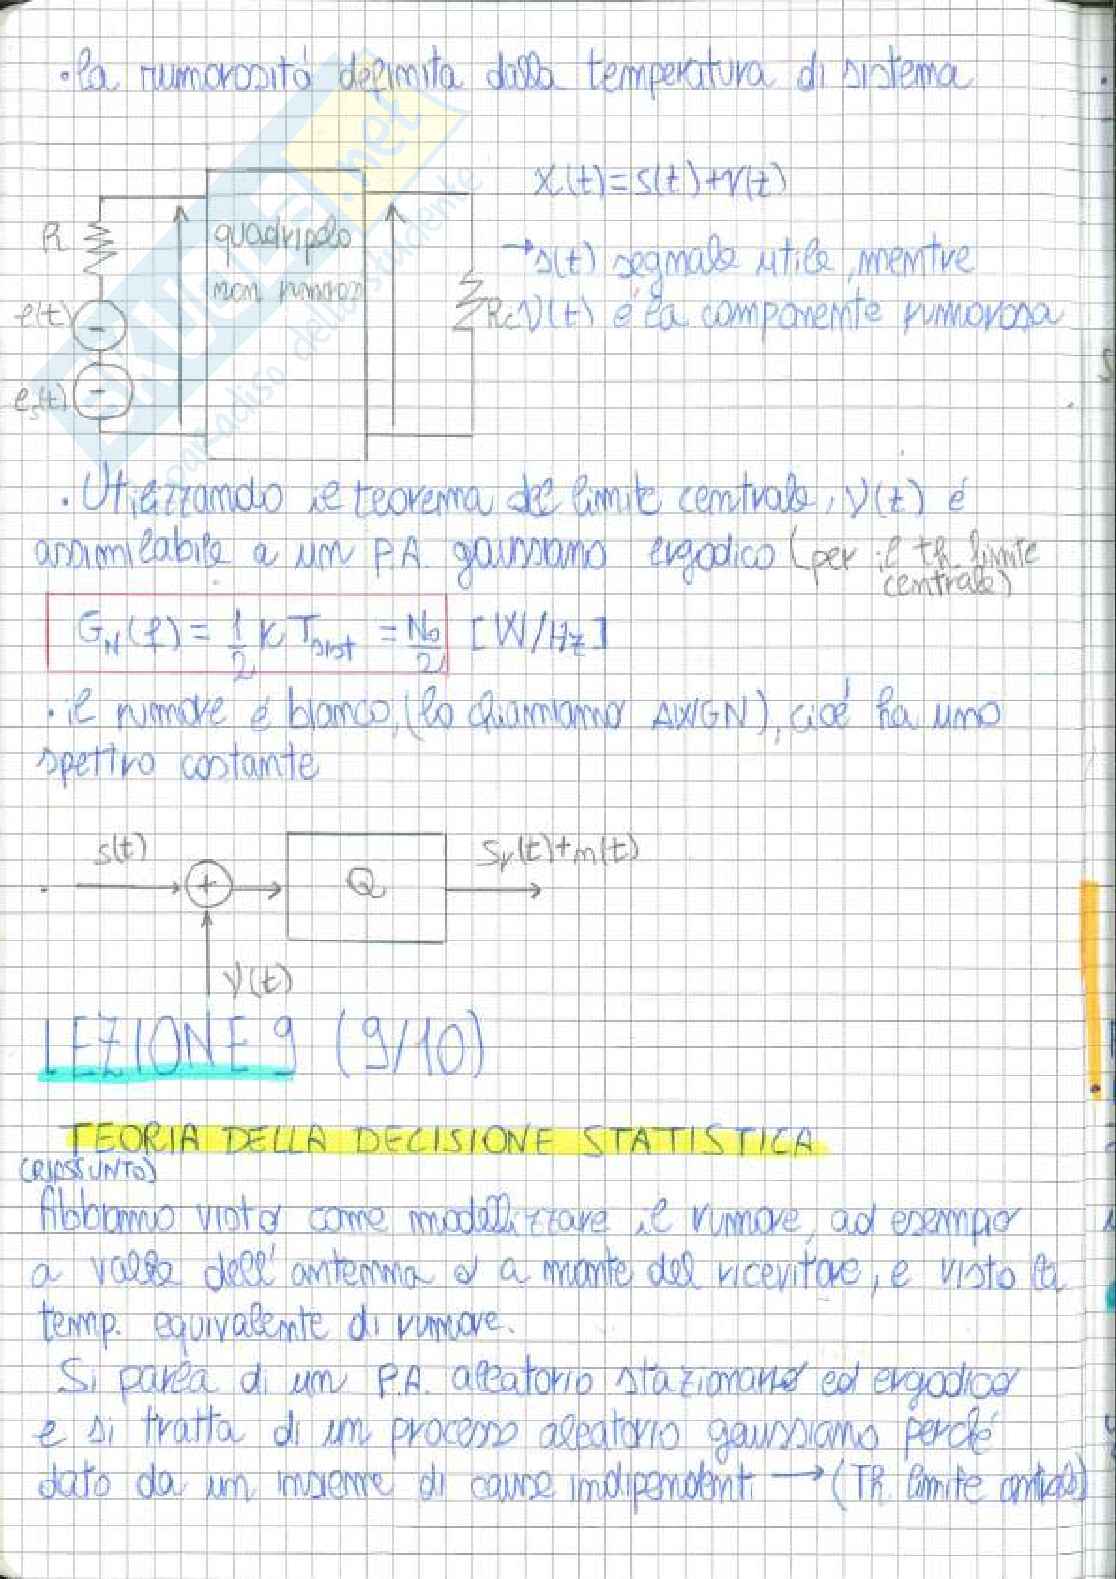 • la rumorosità definita dalla temperatura di sistema
X(t)=S(t)+ν(t)
R
quadripolo
non rumoroso
→ s(t) segnale utile, mentre
e(t)
Rc
ν(t) é la componente rumorosa
es(t)
SKUOLA.net
paradiso dello studente
• Utilizzando il teorema del limite centrale, ν(t) é
assimilabile a un P.A. gaussiano ergodico (per il th. limite
centrale)
G_N(f) = 1/2 K T_sist = N_0/2 [W/Hz]
• il rumore é bianco, (lo chiamiamo AWGN), cioé ha uno
spettro costante
s(t)
Sr(t)+n(t)
+
Q
ν(t)
LEZIONE 9 (9/10)
TEORIA DELLA DECISIONE STATISTICA
(RIASSUNTO)
Abbiamo visto come modellizzare il rumore, ad esempio
a valle dell'antenna e a monte del ricevitore, e visto la
temp. equivalente di rumore.
Si parla di un P.A. aleatorio stazionario ed ergodico
e si tratta di un processo aleatorio gaussiano perché
dato da un insieme di cause indipendenti → (TH. limite centrale)